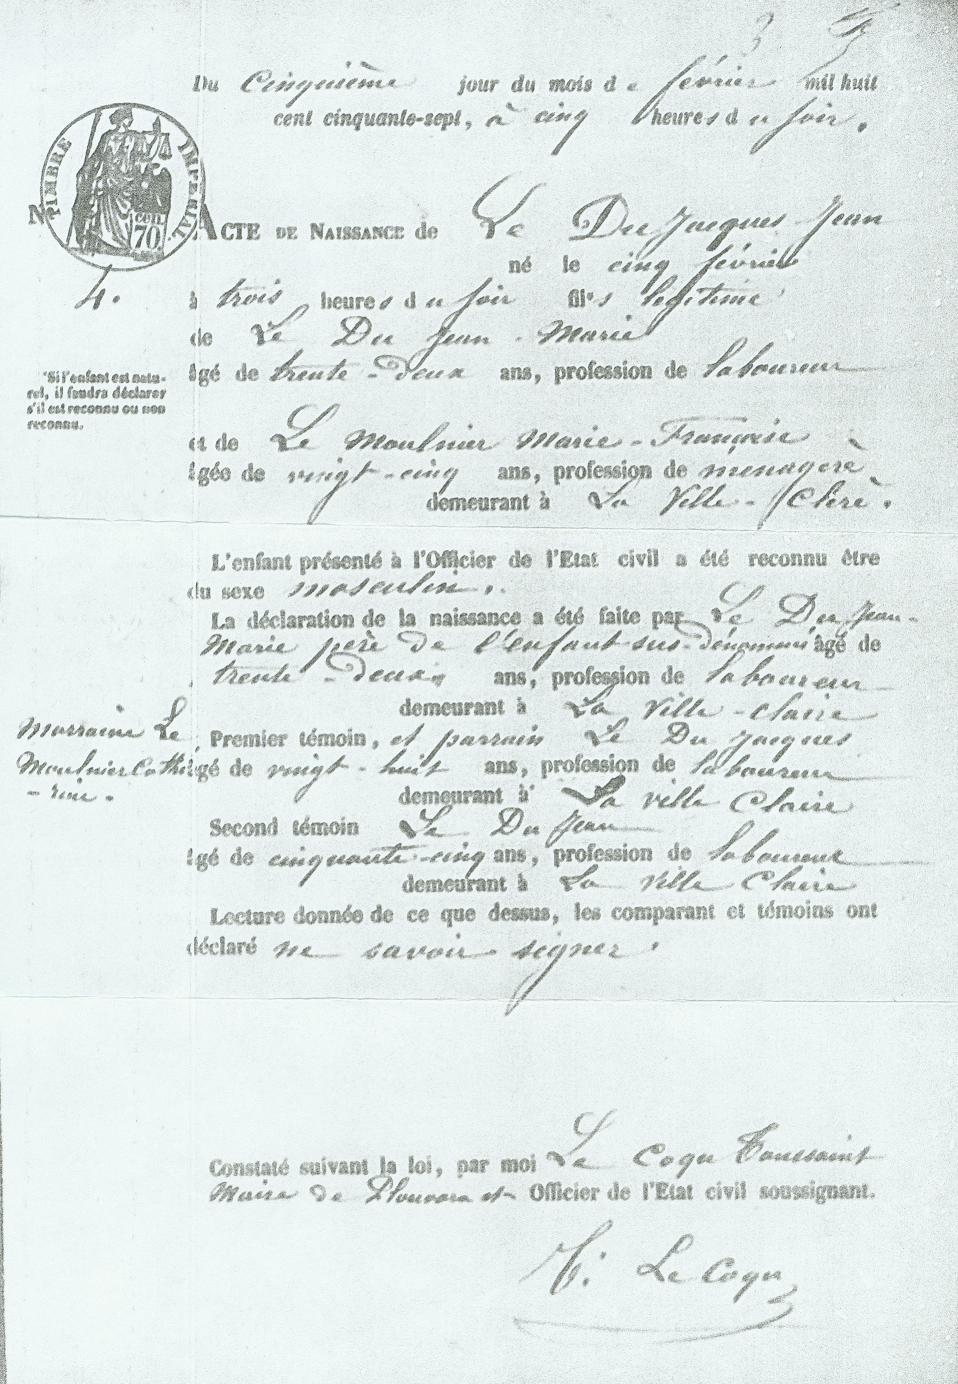 Du Cinquième jour du mois de février mil huit
cent cinquante-sept, à cinq heures du soir.
TIMBRE IMPERIAL
CEN. 70
N
ACTE DE NAISSANCE de Le Du Jacques Jean
né le cinq février
4.
à trois heures du soir fils légitime
de Le Du Jean-Marie
âgé de trente-deux ans, profession de laboureur
Si l'enfant est natu-
rel, il faudra déclarer
s'il est reconnu ou non
reconnu.
et de Le Moulnier Marie-Françoise
âgée de vingt-cinq ans, profession de ménagère
demeurant à La Ville-Clère.
L'enfant présenté à l'Officier de l'Etat civil a été reconnu être
du sexe masculin.
La déclaration de la naissance a été faite par Le Du Jean-
Marie père de l'enfant sus-dénommé âgé de
trente-deux ans, profession de laboureur
demeurant à La Ville-claire
Marraine Le
Moulnier Cathe
-rine.
Premier témoin, et parrain Le Du Jacques
âgé de vingt-huit ans, profession de laboureur
demeurant à La ville Claire
Second témoin Le Du Jean
âgé de cinquante-cinq ans, profession de laboureur
demeurant à La ville Claire
Lecture donnée de ce que dessus, les comparant et témoins ont
déclaré ne savoir signer.
Constaté suivant la loi, par moi Le Coqu Toussaint
Maire de Plouvara et Officier de l'Etat civil soussignant.
T. Le Coqu